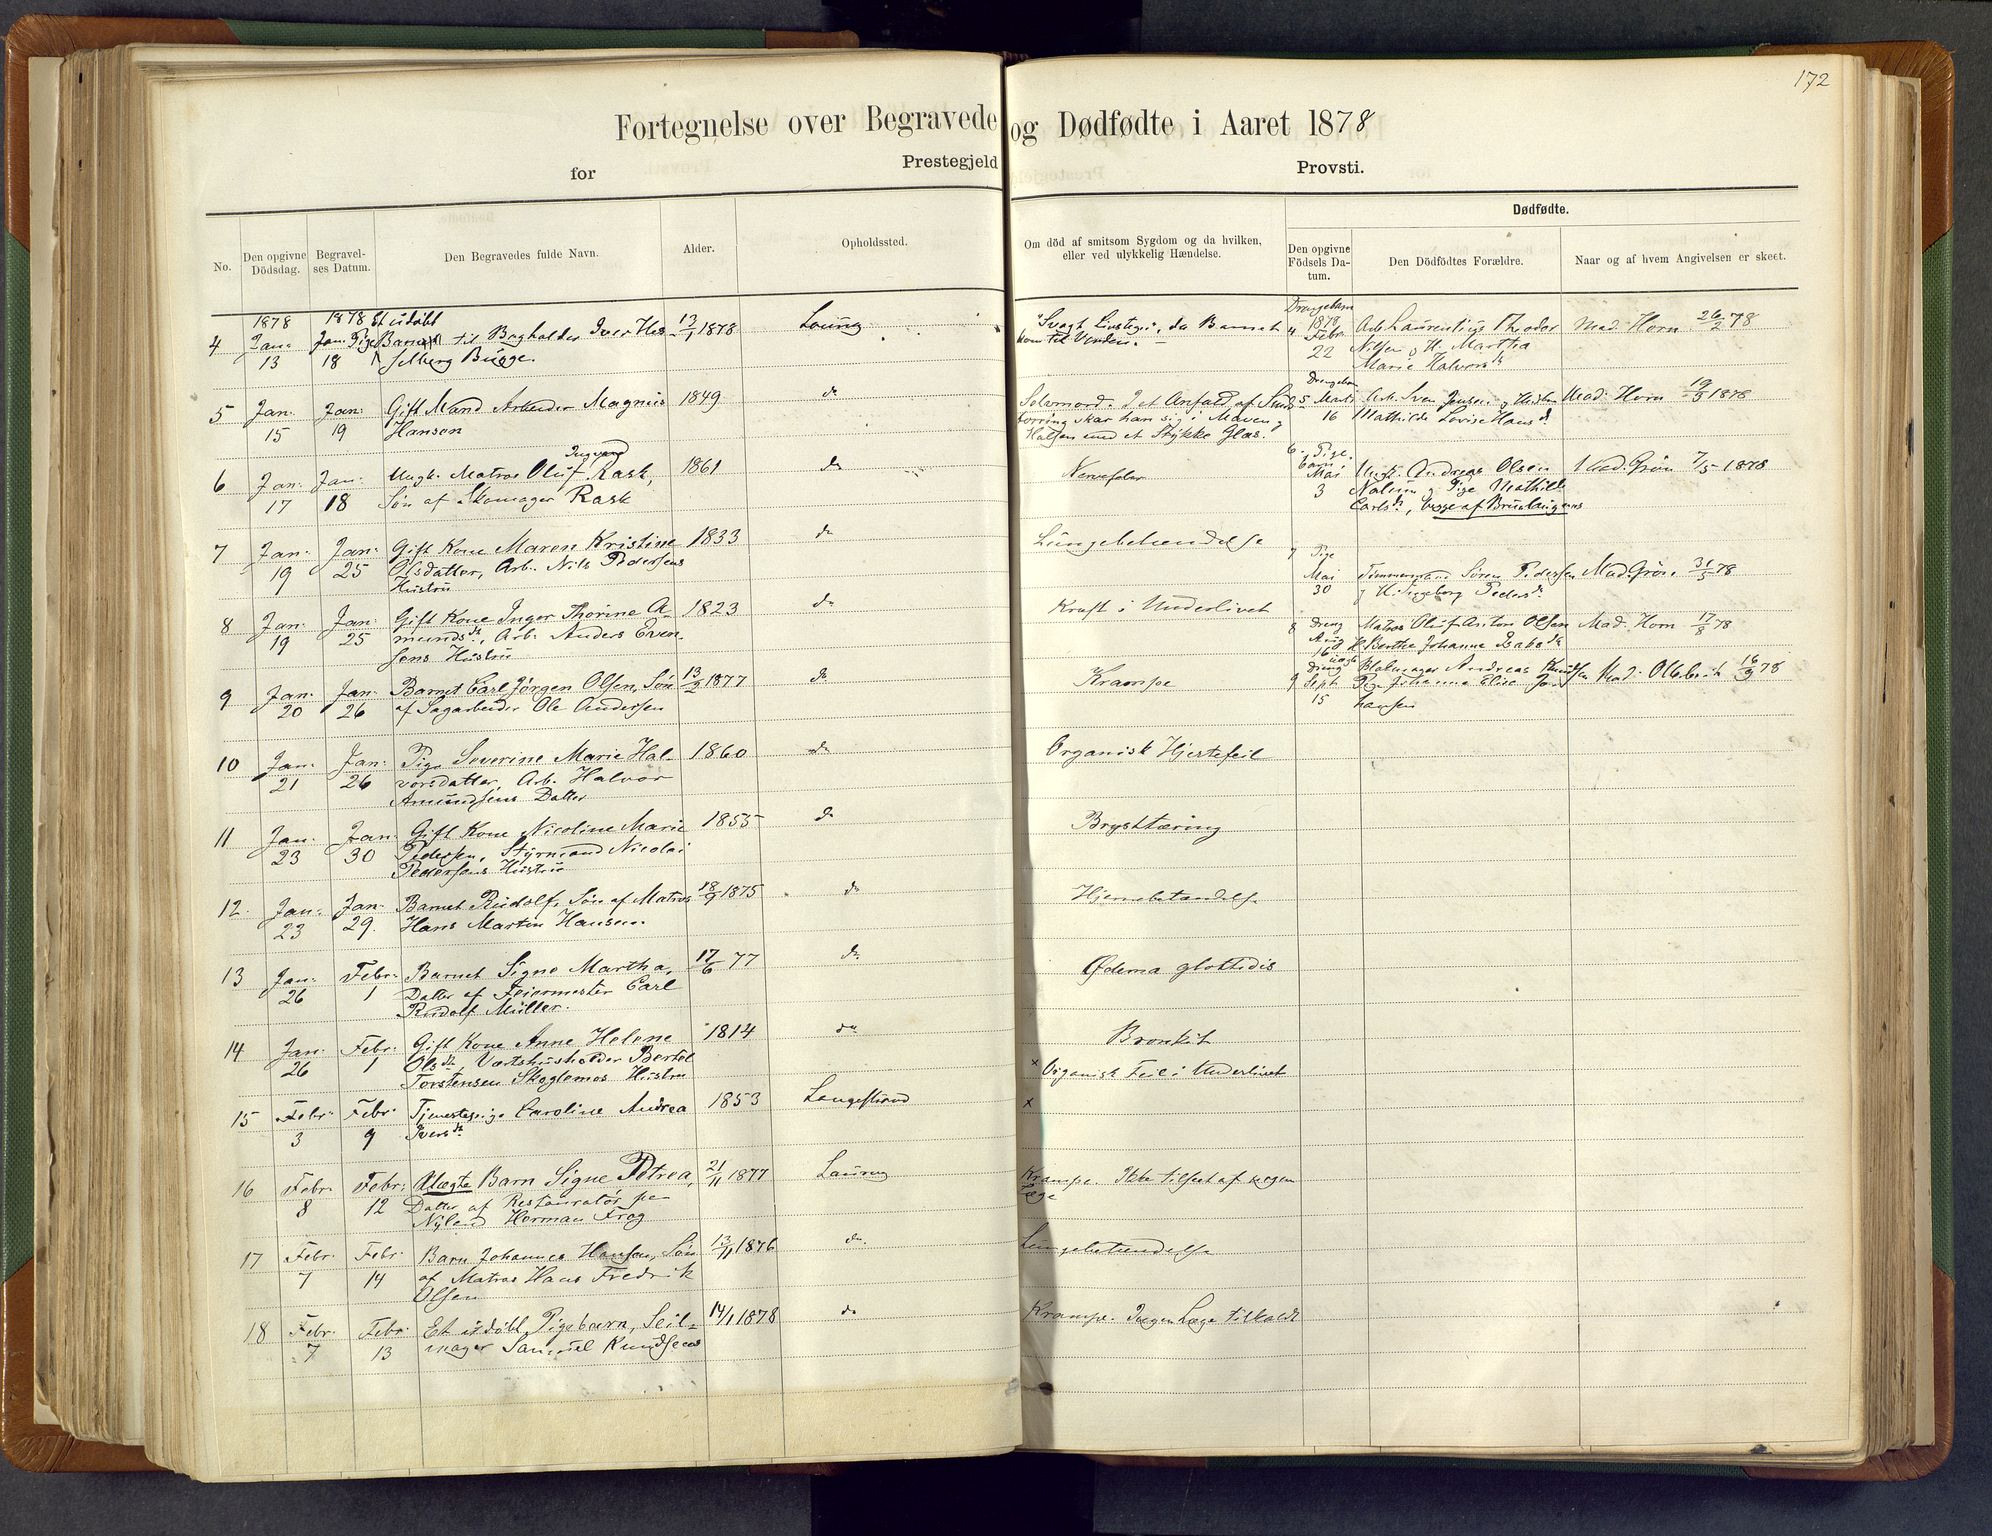 172
Fortegnelse over Begravede og Dødfødte i Aaret 1878
for Prestegjeld Provsti.
Dødfødte.
No. Den opgivne Dödsdag. Begravelses Datum. Den Begravedes fulde Navn. Alder. Opholdssted. Om död af smitsom Sygdom og da hvilken, eller ved ulykkelig Hændelse. Den opgivne Födsels Datum. Den Dödfödtes Forældre. Naar og af hvem Angivelsen er skeet.
1878 1878 Et udøbt
4 Jan: Jan: Pige Barn til Bogholder Iver Hes- 13/1 1878 Laurv
13 18 selberg Bugge.
5 Jan: Jan: Gift Mand Arbeider Magnus 1849 do
15 19 Hansen
Ingvard
6 Jan: Jan: Ungk. Matros Oluf Rask, 1861 do
17 18 Søn af Skomager Rask
7 Jan: Jan: Gift Kone Maren Kristine 1833 do
19 25 Olsdatter, Arb. Nils Pedersens
Hustru
8 Jan: Jan: Gift Kone Inger Thorine A- 1823 do
19 25 mundsdr, Arb. Anders Even-
sens Hustru
9 Jan: Jan: Barnet Carl Jørgen Olsen, Søn 1877 do
20 26 af Sagarbeider Ole Andersen
10 Jan: Jan: Pige Severine Marie Hal- 1860 do
21 26 vorsdatter, Arb. Halvor
Amundsens Datter
11 Jan: Jan: Gift Kone Nicoline Marie 1855 do
23 30 Pedersen, Styrmand Nicolai
Pedersens Hustru
12. Jan: Jan: Barnet Rudolf, Søn af Matros 18/9 1875 do
23 29. Hans Martin Hansen.
13 Jan: Febr: Barnet Signe Martha, 17/6 77 do
26 1 Datter af Feiermester Carl
Rudolf Müller.
14 Jan: Febr: Gift Kone Anne Helene 1814 do
26 1 Olsdr, Værtshusholder Bertel
Torstensen Skoglemos Hustru
15 Febr: Febr: Tjenestepige Caroline Andrea 1853 Langestrand
3 9 Iversdr
16 Febr: Febr: Uægte Barn Signe Petrea, 21/11 1877 Laurv
8 12 Datter af Restauratør paa
Nyland Herman Frog
17 Febr: Febr: Barn Johannes Hansen, Søn 13/11 1876 do.
7 14 af Matros Hans Fredrik
Olsen
18 Febr: Febr: Et udøbt Pigebarn, Seil- 14/1 1878 do
7 13 mager Samuel Knudsens
"Svagt Livstegn", da Barnet
kom til Verden.
Selvmord. I et Anfald af Sinds
forvirring skar han sig i Maven og
Halsen med et Stykke Glas.
Nervefeber
Lungebetændelse
Kræft i Underlivet
Krampe
Organisk Hjertefeil
Brysttæring
Hjernebetændelse
Ødema glottidis
Bronkit
× Organisk Feil i Underlivet
×
Krampe. Ikke tilseet af nogen
Læge
Lungebetændelse
Krampe. Ingen Læge tilkaldt
Drengebarn
1878
4 Febr Arb. Laurentius Theodor Mad. Horn 26/2 78
22 Nilsen og H. Martha
Marie Halvorsdr
Drengebarn
5 Marts Arb. Sven Jensen og Hustru Mad. Horn 1878
16 Mathilde Lovise Hansdr
6. Pige-
barn
Mai Ungk. Andreas Olsen Mad. Grøn 7/5 1878
3 Nalum og Pige Mathilde
Carlsdr,
7 Pige
Mai Tømmermand Søren Pedersen Mad. Grøn. 31/5 78
30 og H. Ingeborg Pedersdr
8 Dreng Matros Oluf Anton Olsen Mad. Horn 17/8 78
Aug
16 H. Berthe Johanne
uægte
Dreng Blokmager Andreas Knudsen Mad. 16/9 78
9 Sept Pige Johanna Elise Jo-
15 hansen